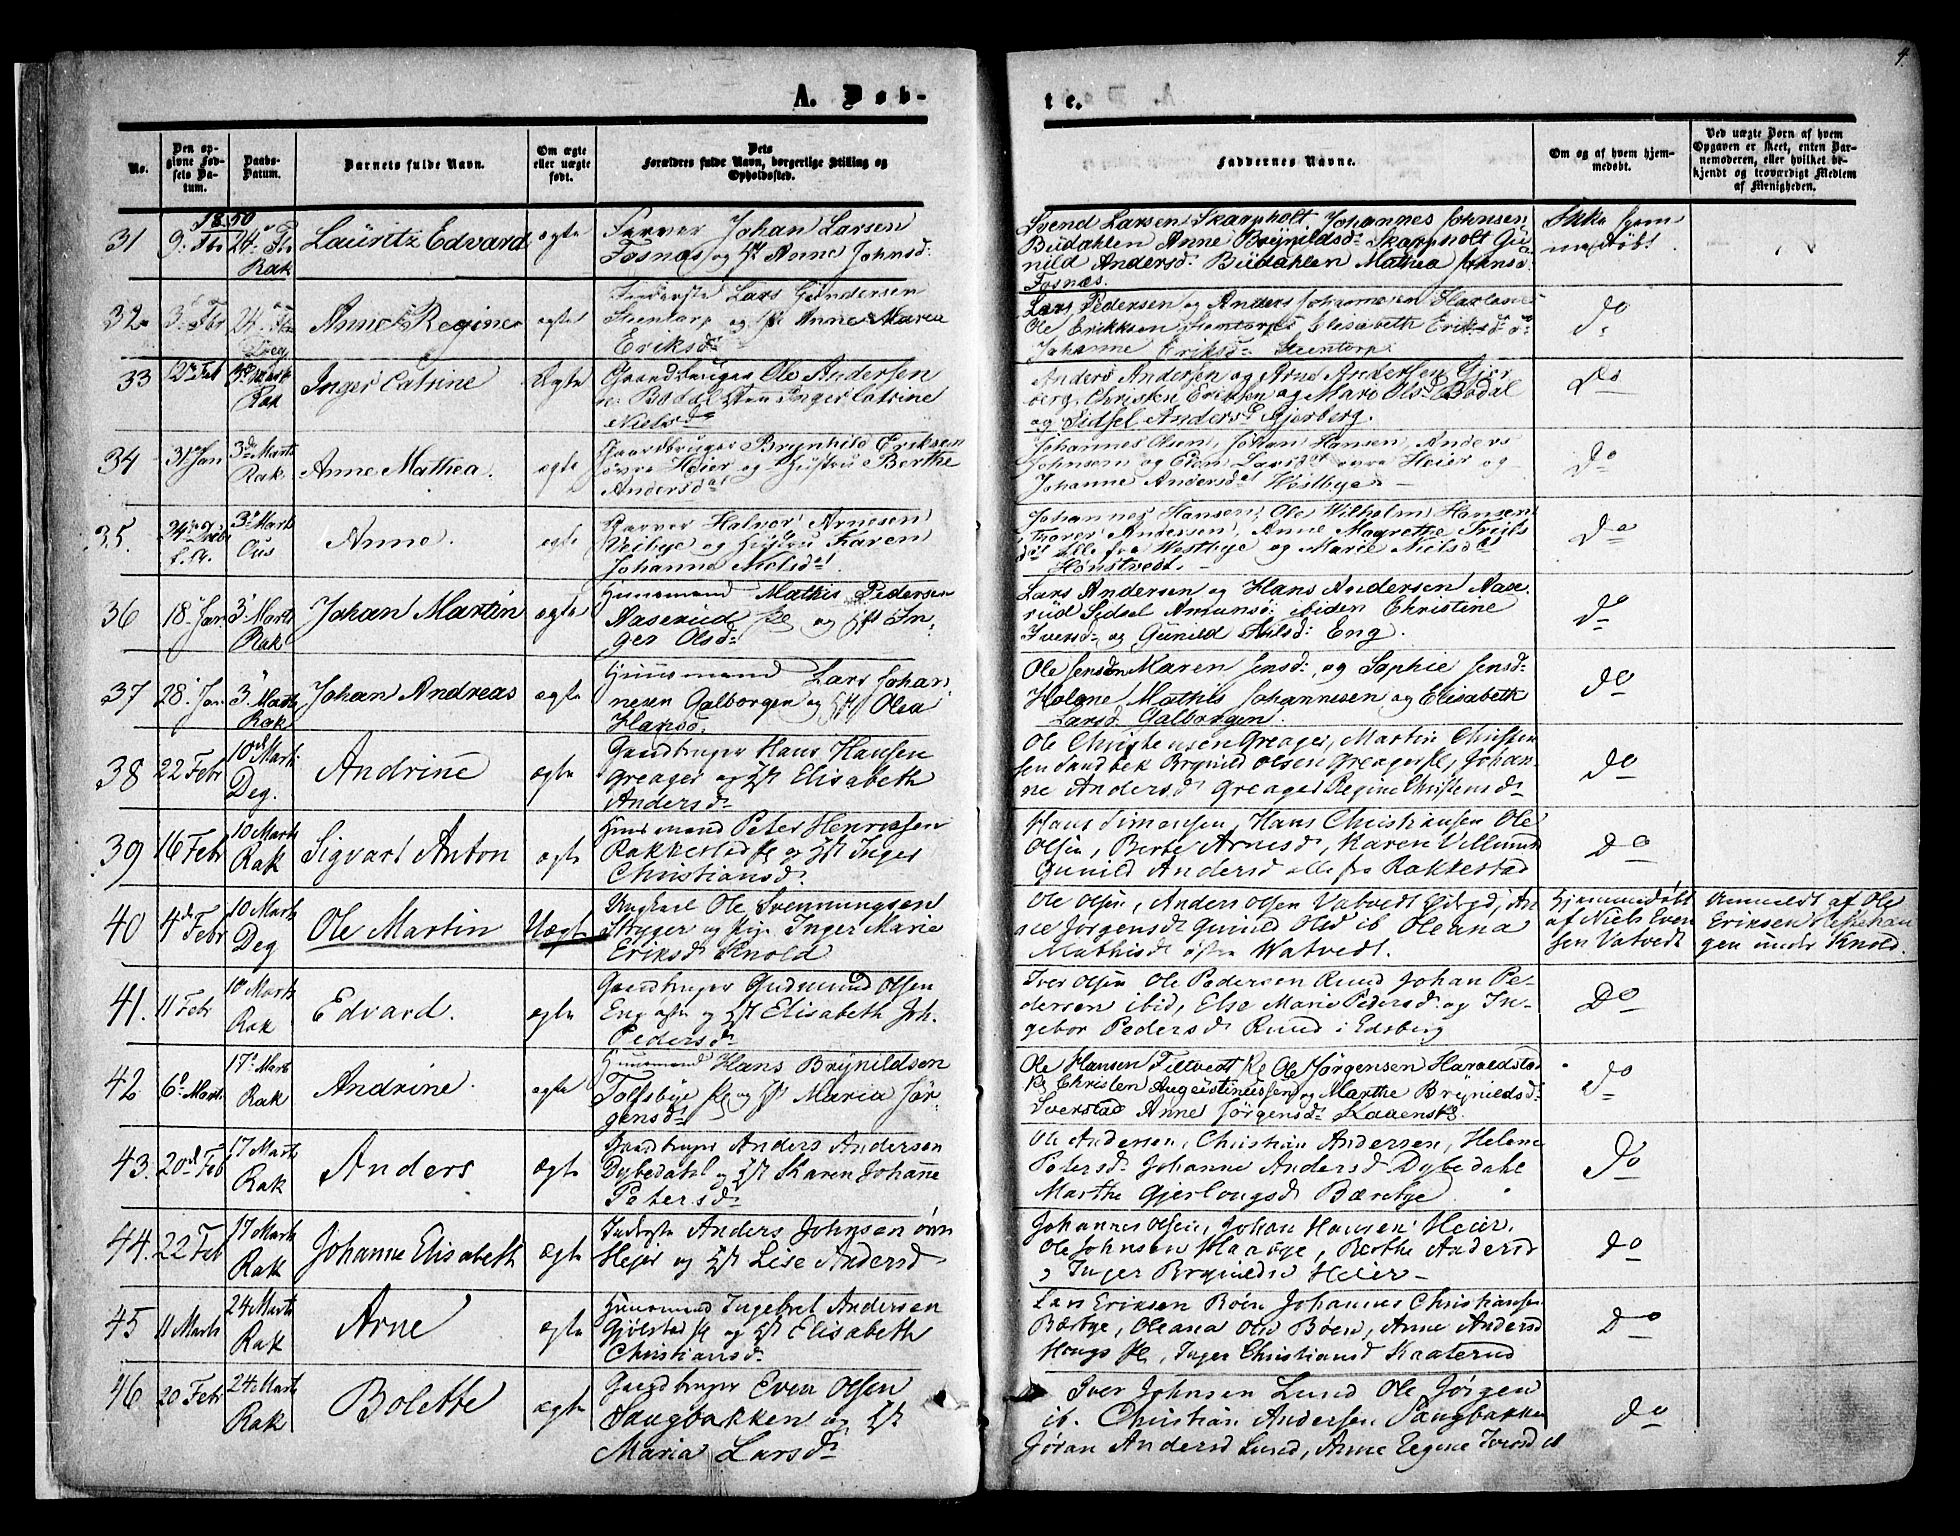 4.
A. Døb-
te.
No.
Den op-
givne Fød-
sels Da-
tum.
Daabs-
Datum.
Barnets fulde Navn.
Om ægte
eller uægte
født.
Dets
Forældres fulde Navn, borgerlige Stilling og
Opholdssted.
Faddernes Navne.
Om og af hvem hjem-
medøbt.
Ved uægte Børn af hvem
Opgaven er skeet, enten Bar-
nemoderen, eller hvilket be-
kjendt og troværdigt Medlem
af Menigheden.
1850
31
9. Fbr
24. Fbr
Rak
Lauritz Edvard
ægte
Farver Johan Larsen
Fosnæs og Hst Anne Johnsd:
Svend Larsen Skarpholt Johannes Johnsen
Budahlen Anne Brynildsd: Skarpholt Gu
nild Andersd: Budahlen Mathea Johnsd:
Fosnæs.
Ikke hjem
medøbt.
32
3. Fbr
24. Fbr
Deg
Anne Regine
ægte
Inderste Lars Gundersen
Steentorp og Hst Anne Maria
Eriksd:
Lars Pedersen og Anders Johannesen Harlane
Ole Eriksen Steentorp, Elisabeth Eriksd: o:
Johanne Eriksd: Steentorp.
do
33
12 Feb
3 Marts
Rak
Inger Catrine
Ægte
Gaardbruger Ole Andersen
Bodal Inger Catrine
Nielsd:
Anders Andersen og Arne Andersen Gjer
berg, Christen Eriksen og Mari Olsd: Bodal
og Sidsel Andersd: Gjerberg.
do
34
31 Jan
3 Marts
Rak
Anne Mathea.
ægte
Gaardbruger Brynhild Eriksen
øvre Heier og Hustru Berthe
Andersd:
Johannes Olsen, Johan Hansen, Anders
Johnsen og Larsd: øvre Heier og
Johanne Andersd: Westbye
do
35.
24
f. A.
3 Marts
Ous
Anne.
ægte
Garver Halvor Arnesen
Veibye og Hustru Karen
Johanne Nielsd:
Johannes Hansen, Ole Wilhelm Hansen
Andersen, Anne Magrethe
alle fra Westbye og Marie Nielsd:
do
36
18 Jan.
3 Marts
Rak
Johan Martin
ægte
Huusmand Mathis Pedersen
Aaserud og Hst In-
ger Olsd:
Lars Andersen og Hans Andersen Aase
rud Sidsel Amundsd: ibiden Christine
Iversd: og Gunild Nilsd: Eng.
do
37
28 Jan
3 Marts
Rak
Johan Andreas
ægte
Huusmand Lars Johan-
nesen Galborgen og Hst Olea
Hansd:
Ole Jensen Maren Jensd: og Sophie Jensd:
Holene Mathis Johannesen og Elisabeth
Larsd: Galborgen.
do
38
22 Febr
10 Marts
Deg.
Andrine
ægte
Gaardbruger Hans Hansen
Greager og Hst Elisabeth
Andersd:
Ole Christensen Greager, Martin Christen
sen Sandbek Brynild Olsen Greager, Johan-
ne Andersd: Greager Regine Christensd:
do
39
16 Febr
10 Marts
Rak
Sigvart Anton
ægte
Huusmand Peter Henriksen
Rakkestad og Hst Inger
Christiansd:
Hans Simensen, Hans Christiansen Ole
Olsen, Berte Arnesd:, Karen
Gunild Andersd alle fra Rakkestad
do
40
4 Febr
10 Marts
Deg
Ole Martin
Uægte
Ungkarl Ole Svenningsen
Stryger og Pige Inger Marie
Eriksd: Knold
Ole Olsen, Anders Olsen Vatvedt
Jørgensd: Gunild Olsd ib Oleana
Mathisd: Watvedt.
Hjemmedøbt
af Niels Even
sen Vatvedt
Anmeldt af Ole
Eriksen
gen under Knold.
41.
11 Febr
10 Marts
Rak
Edvard.
ægte
Gaardbruger Gudmund Olsen
Eng og Hst Elisabeth Joh.
Pedersd:
Iver Olsen Ole Pedersen Ruud Johan Pe-
dersen ibid, Else Marie Pedersd: og In-
gebor Pedersd: Ruud i Edsberg
Do
42
6 Marts
17 Marts
Rak
Andrine.
ægte
Huusmand Hans Brynildsen
Tolfsbye og Hst Maria Jør-
gensd:
Ole Hansen Ole Jørgensen Haraldsta
Christen Augustinussen og Marthe Brynildsd:
Sverstad Anne Jørgensd:
do
43.
20 Feb
17 Marts
Rak
Anders
ægte
Gaardbruger Anders Andersen
Dybedahl og Hst Karen Johanne
Petersd:
Ole Andersen, Christian Andersen, Helene
Petersd: Johanne Andersd: Dybedahl
Marthe Gjerlougsd: Bærebye
do
44.
22 Feb
17 Marts
Rak
Johanne Elisabeth
ægte
Inderste Anders Johnsen øvre
Hejer og Hst Lise Andersd
Johannes Olsen, Johan Hansen Heier,
Ole Johnsen, Berthe Andersd
Inger Brynildsd Heier
do
45
11 Marts
24 Marts
Rak
Arne
ægte
Huusmand Ingebret Andersen
Gjølstad og Hst Elisabeth
Christiansd:
Lars Eriksen Böen Johannes Christiansen
Bærbye, Oleana Olsd Böen, Anne Andersd
Inger Christiansd Kaaterud
do
46
20 Febr
24 Marts
Rak
Bolette
ægte
Gaardbruger Even Olsen
Saugbakken og Hst
Maria Larsd:
Iver Johnsen Lund Ole Jørgen
ib. Christian Andersen Saugbakken
Jøran Andersd Lund, Anne Regine Iversd ib
do